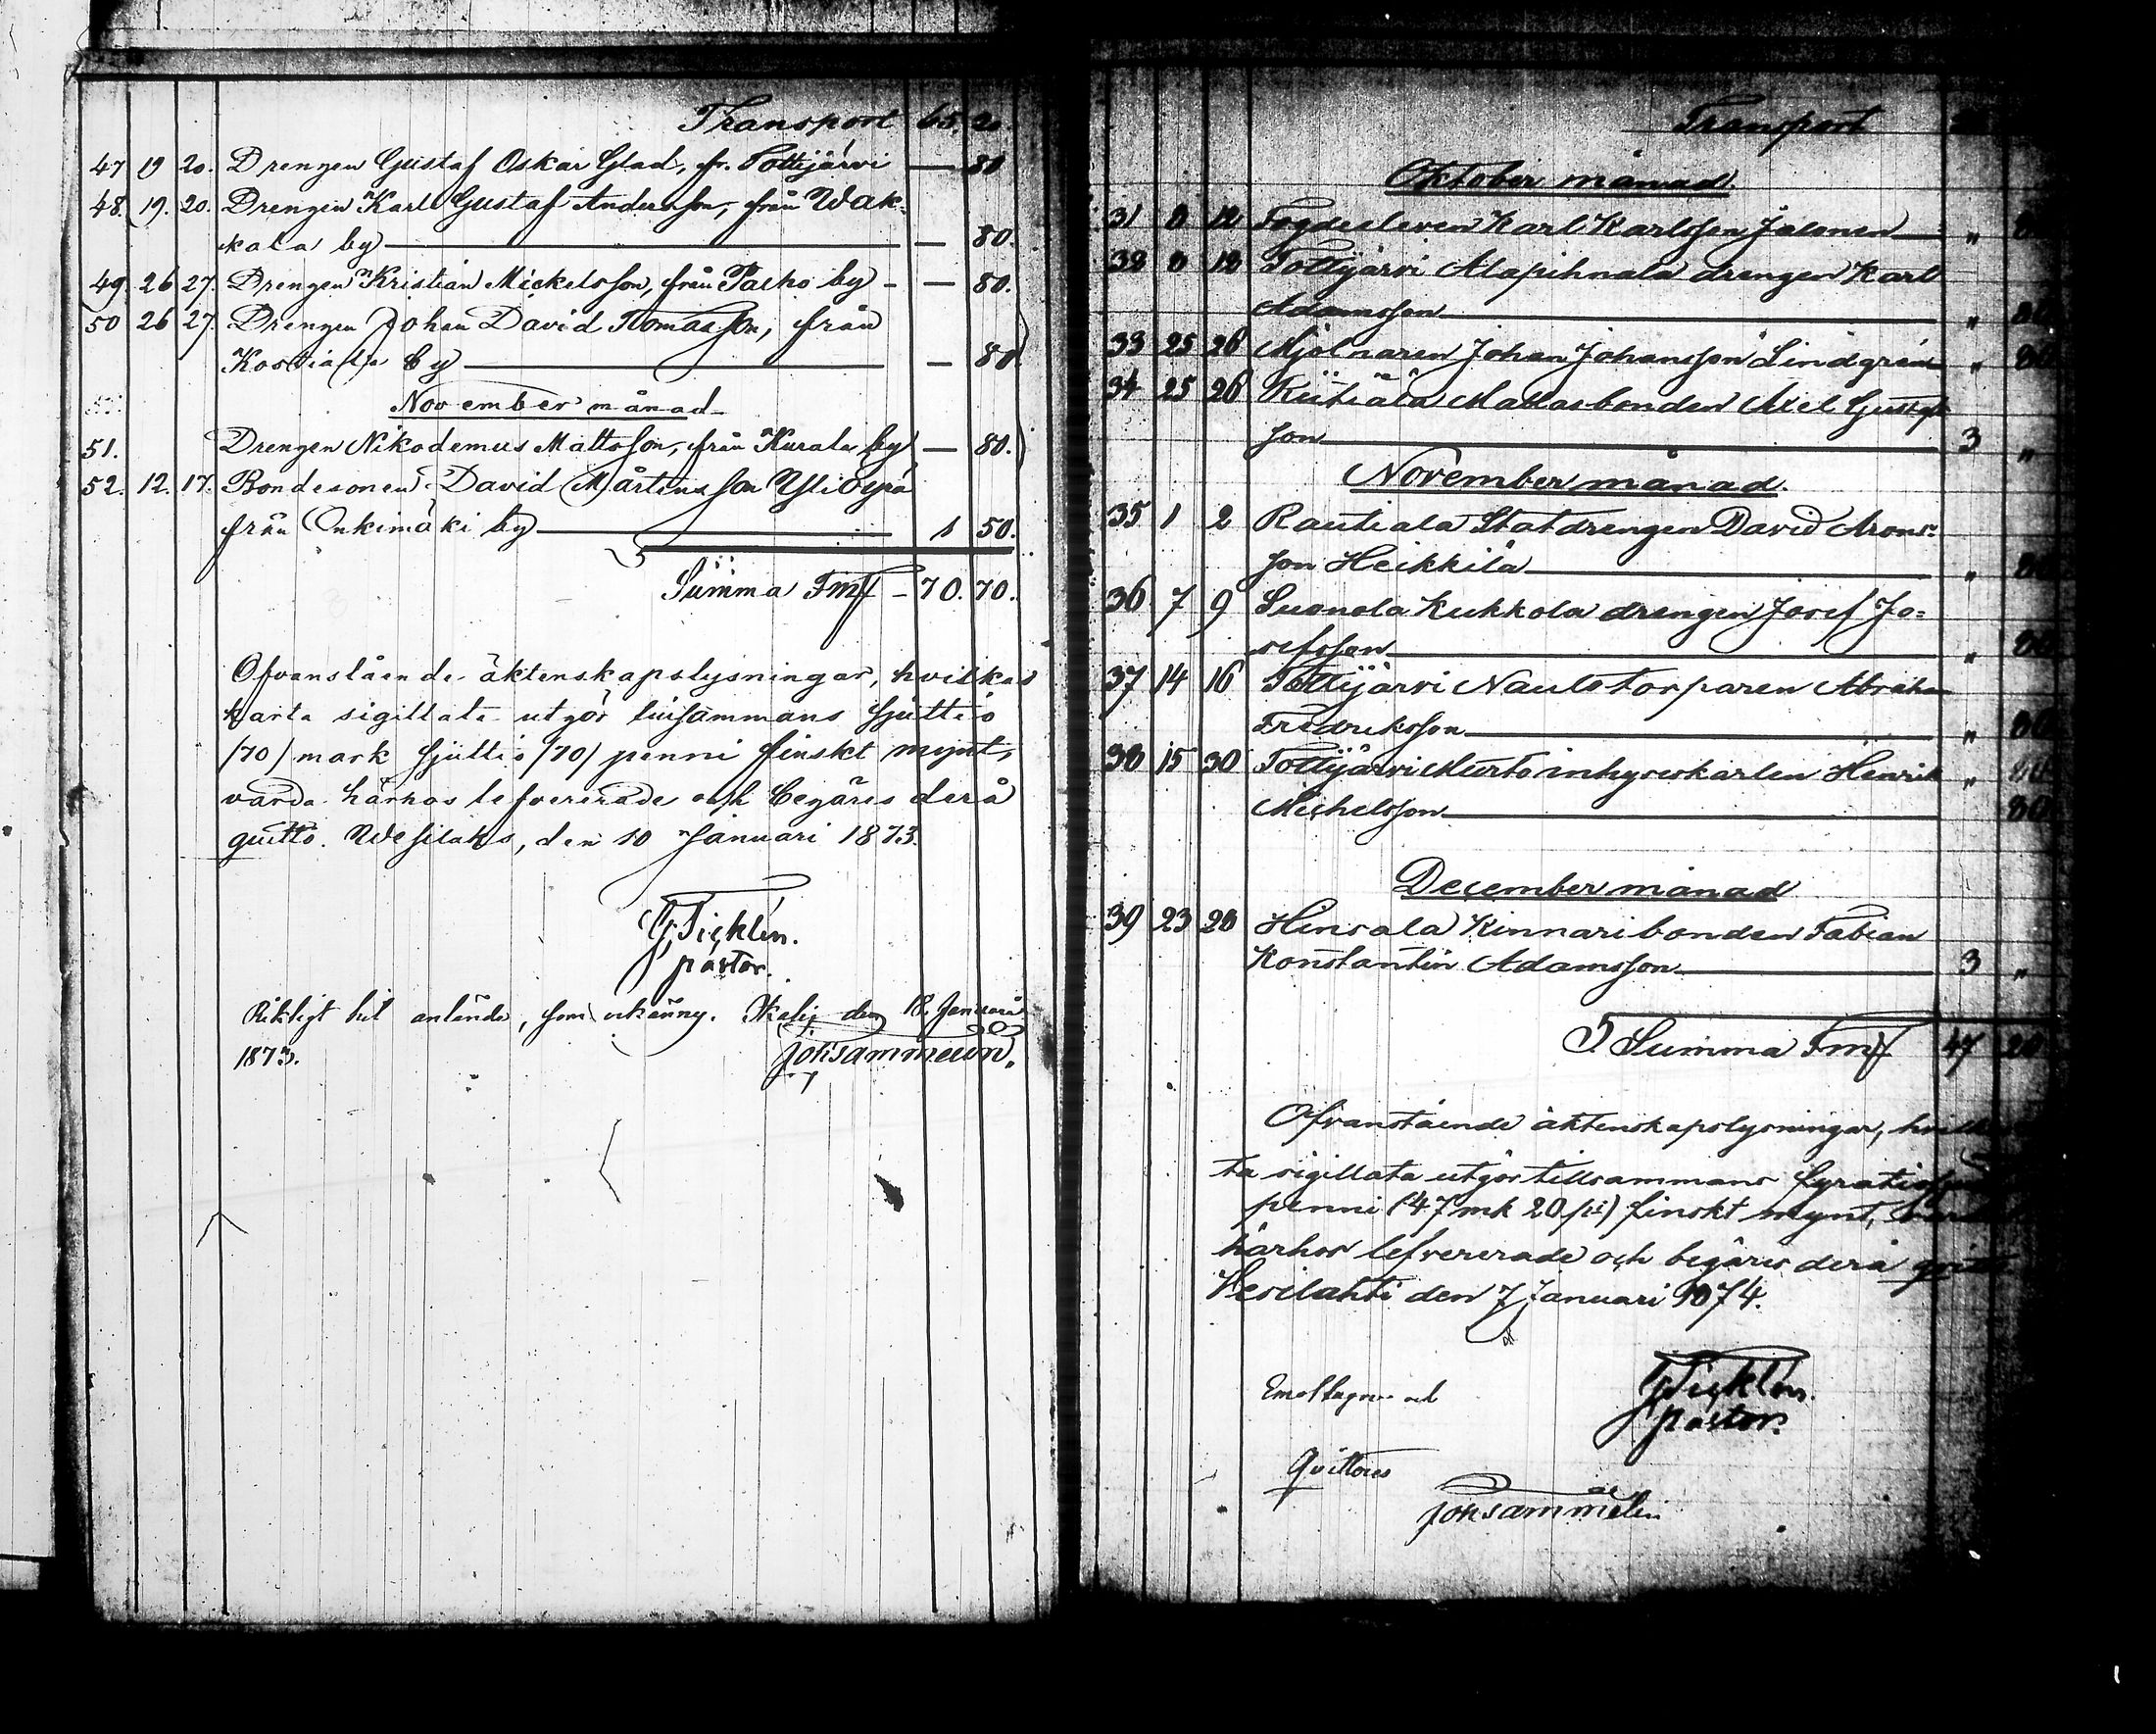 Transport 65. 20.
47 19 20. Drengen Gustaf Oskar Glad, fr. Tottijärvi — 80
48. 19. 20. Drengen Karl Gustaf Andersson, från Wak-
kala by — 80.
49. 26 27. Drengen Kristian Mickelsson, från Palho by - — 80.
50 26 27. Drengen Johan David Thomasson, från
Kostiala by — 80.
November månad
51. Drengen Nikodemus Mattsson, från Kurala by — 80.
52. 12. 17. Bondesonen David Mårtensson Yli Öyrä
från Onkimäki by 1 50.
Summa Fmk - 70. 70.
Ofvanstående äktenskapslysningar, hvilkas
karta sigillata utgör tillsammans sjuttio
/70/ mark sjuttio /70/ penni finskt mynt,
varda härhos lefvererade och begäres derå
quitto. Wesilaks, den 10 Januari 1873.
G Ticklén.
pastor.
Riktigt hit anlände, som erkännes. den 18 Januari
1873. Joh Sammelin.
Transport
Oktober månad.
31 8 12 Fogdeeleven Karl Karlsson Jalonen "
32 8 12 Tottijärvi Alapihnala drengen Karl
Adamsson " 80
33 25 26 Mjölnaren Johan Johansson Lindgren " 80
34 25 26 Kiitiälä Mattas bonden Axel Gustafs
son 3 "
November månad.
35 1 2 Rautiala Statdrengen David Arons-
son Heikkilä " 80
36 7 9 Suonola Kukkola drengen Josef Jo-
sefsson " 80
37 14 16 Tottijärvi Naulo torparen Abraham
Fredriksson " 80
38 15 30 Tottijärvi Murto inhyseskarlen Henrik " 80
Michelsson 80
December månad
39 23 28 Hinsala Kinnari bonden Fabian
Konstantin Adamsson 3 "
S. Summa Fmk 47 20
Ofvanstående äktenskapslysningar,
ta sigillata utgör tillsammans
penni (47 mk 20 pi) finskt mynt, varda
härhos lefvererade och begäres derå quitto
Vesilahti den 7 Januari 1874.
G Ticklén.
pastor.
Emottagne och
Qvitteras
Joh Sammelin